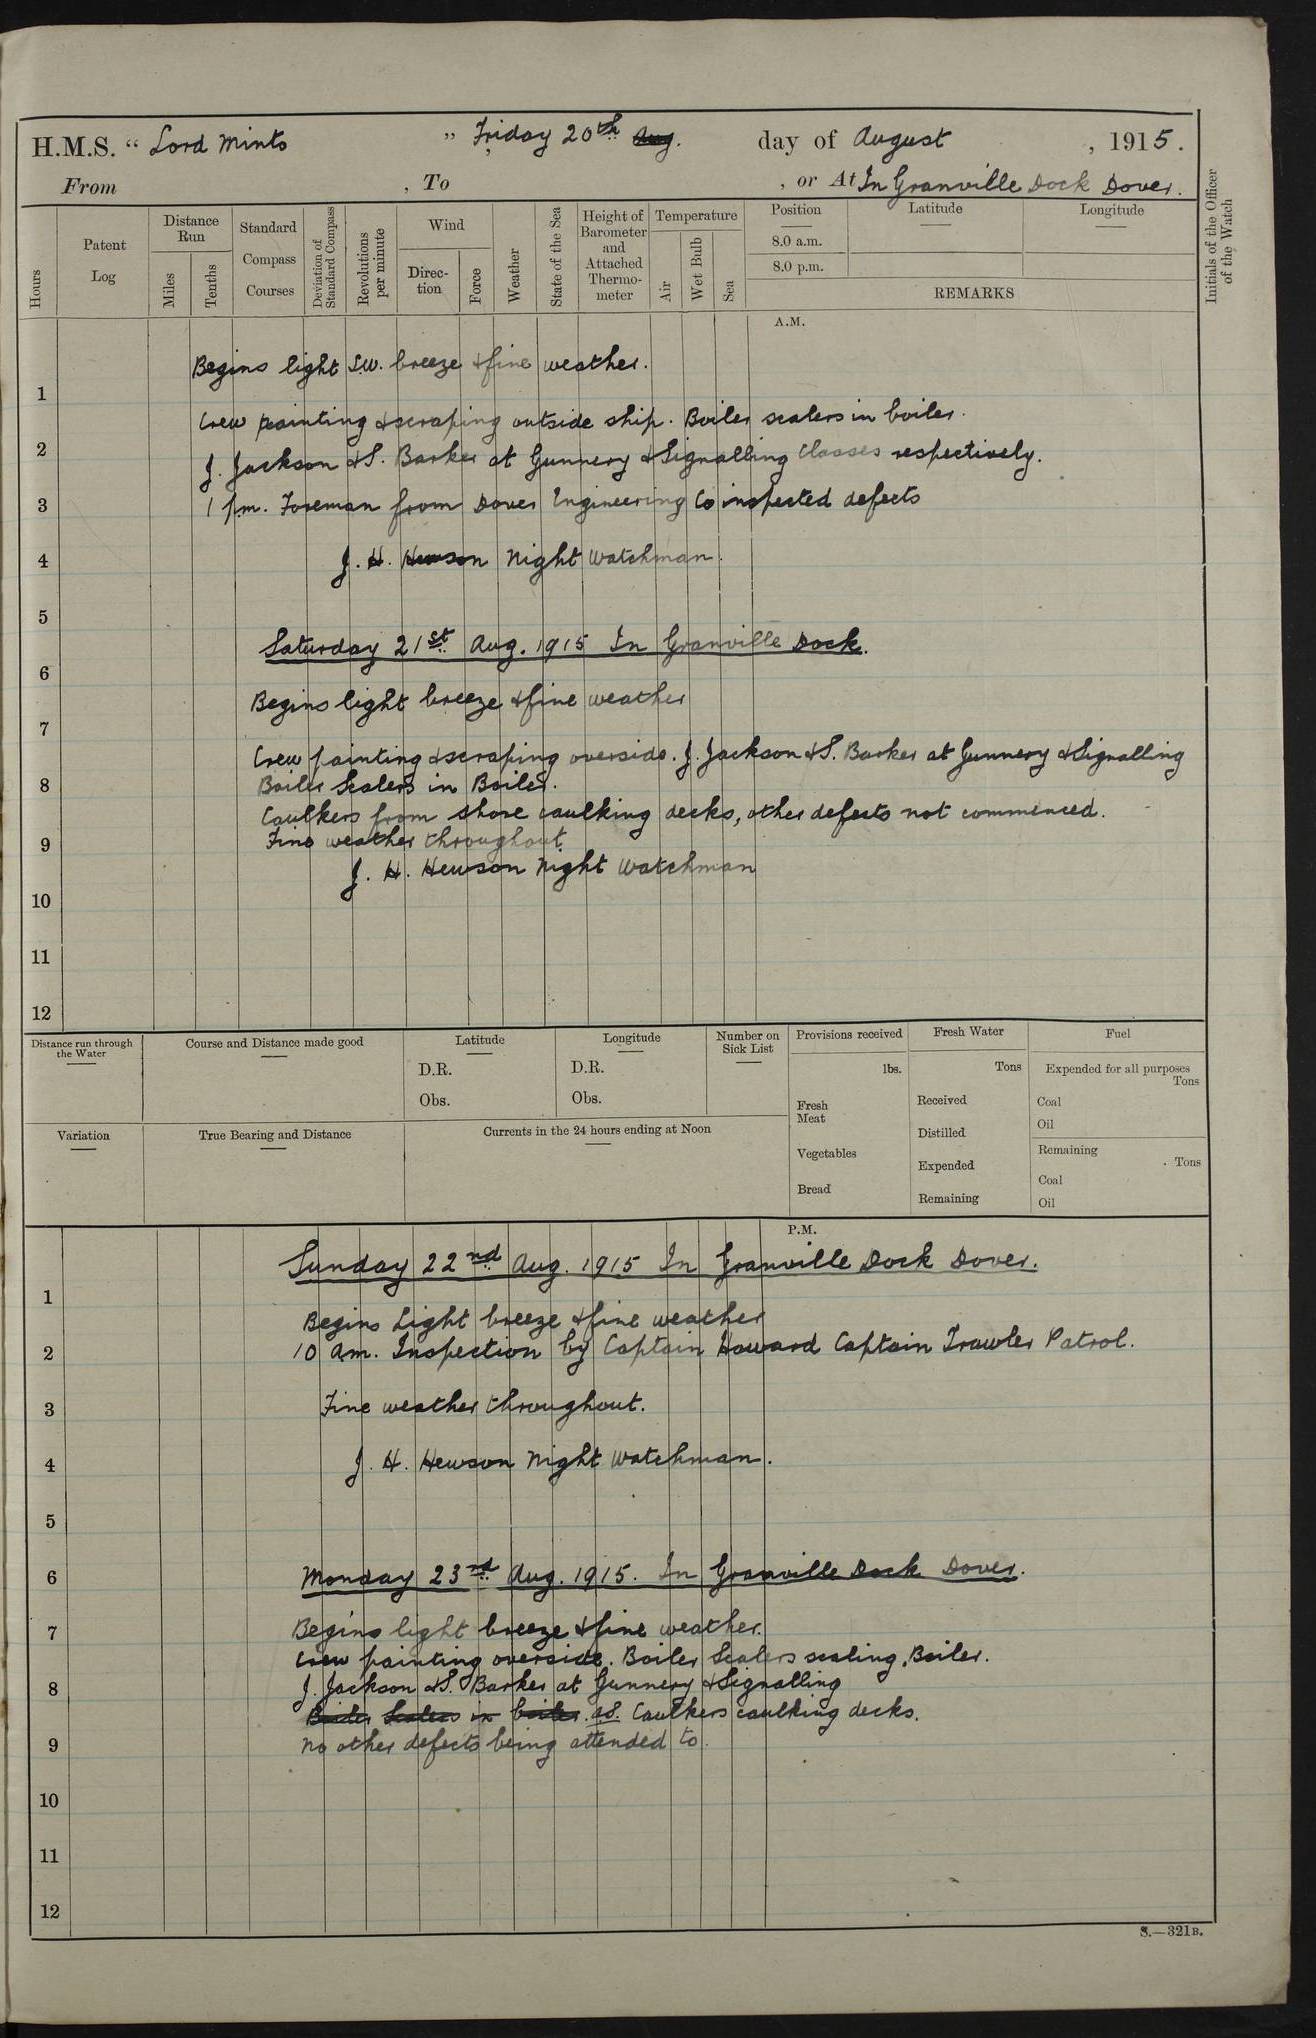 H.M.S. “ Lord Minto ” Friday 20th Aug. day of August , 1915.
From , To , or At In Granville Dock Dover.
Hours
Patent Log
Distance Run
Miles
Tenths
Standard Compass Courses
Deviation of Standard Compass
Revolutions per minute
Wind
Direc-tion
Force
Weather
State of the Sea
Height of Barometer and Attached Thermo-meter
Temperature
Air
Wet Bulb
Sea
Position
8.0 a.m.
8.0 p.m.
Latitude
Longitude
REMARKS
Initials of the Officer of the Watch
A.M.
Begins light S.W. breeze & fine weather.
1
Crew painting & scraping outside ship. Boiler scalers in boiler.
2
J. Jackson & S. Barker at Gunnery & Signalling Classes respectively.
3
1 pm. Foreman from Dover Engineering Co inspected defects
4
J. H. Hewson Night Watchman.
5
Saturday 21st Aug. 1915 In Granville Dock.
6
Begins light breeze & fine weather
7
Crew painting & scraping overside. J. Jackson & S. Barker at Gunnery & Signalling
8
Boiler Scalers in Boiler.
Caulkers from shore caulking decks, other defects not commenced.
9
Fine weather throughout.
J. H. Hewson Night Watchman
10
11
12
Distance run through the Water
Course and Distance made good
Latitude
D.R.
Obs.
Longitude
D.R.
Obs.
Number on Sick List
Provisions received
lbs.
Fresh Meat
Vegetables
Bread
Fresh Water
Tons
Received
Distilled
Expended
Remaining
Fuel
Expended for all purposes
Tons
Coal
Oil
Remaining
Tons
Coal
Oil
Variation
True Bearing and Distance
Currents in the 24 hours ending at Noon
P.M.
Sunday 22nd Aug. 1915 In Granville Dock Dover.
1
Begins Light breeze & fine weather
2
10 am. Inspection by Captain Howard Captain Trawler Patrol.
3
Fine weather throughout.
4
J. H. Hewson Night Watchman.
5
6
Monday 23rd Aug. 1915. In Granville Dock Dover.
7
Begins light breeze & fine weather.
Crew painting overside. Boiler Scalers scaling Boiler.
8
J. Jackson & S. Barker at Gunnery & Signalling
Boiler Scalers in boiler. as. Caulkers caulking decks.
9
No other defects being attended to.
10
11
12
S.—321B.